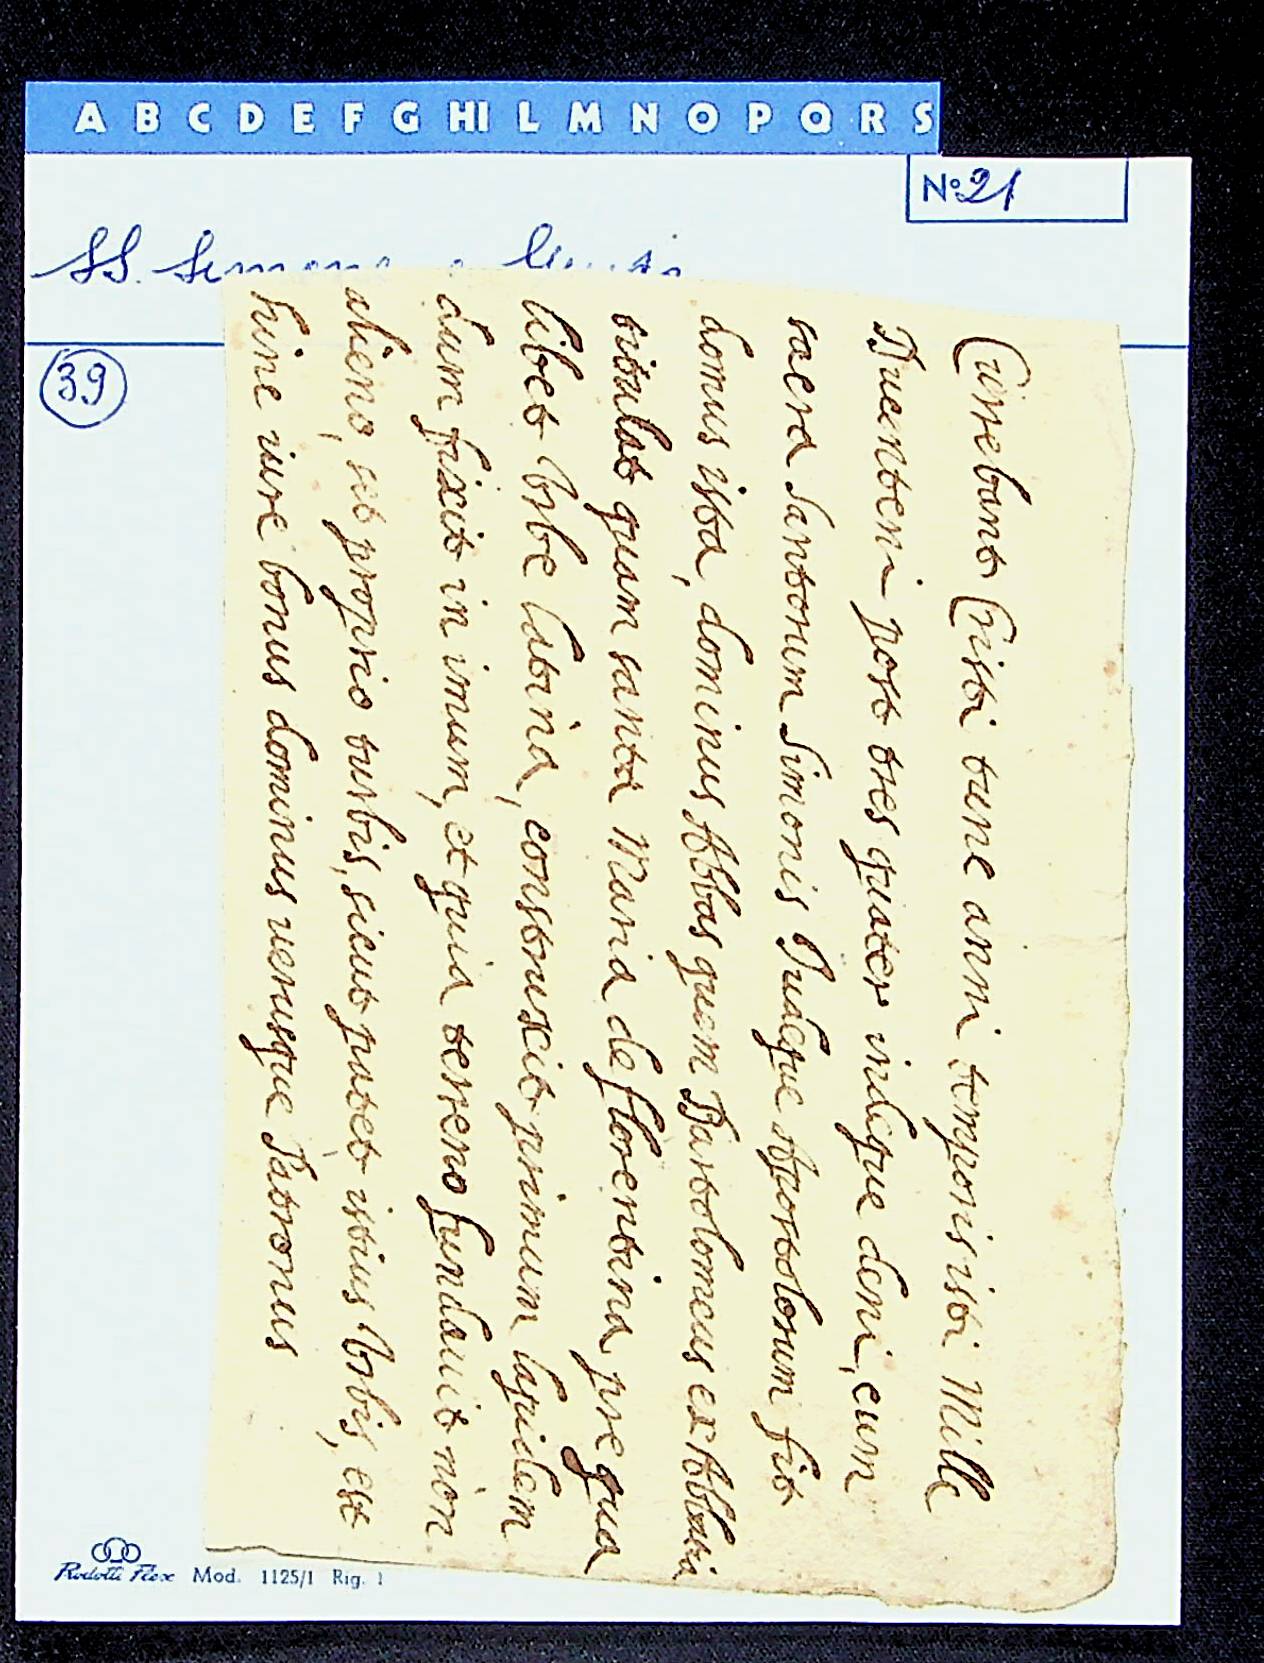 A B C D E F G HI L M N O P Q R S
N° 21
SS. Simone e
39
Currebant Cristi tunc anni temporis isti Mille
Ducenteni post tres quater indeque deni, cum
sacra Santorum Simonis Iudeque Apostolorum fit
domus ista, dominus Abbas quem Bartolomeus ex Abbatia
titulat quam santa Maria de florentina pre qua
libet Urbe latina, construxit primum lapidem
dum fixit in imum, et quia terreno fundauit non
alieno, set proprio turbis, sicut patet istius Urbis, est
hinc iure bonus dominus uerusque Patronus
Mod. 1125/1 Rig. 1